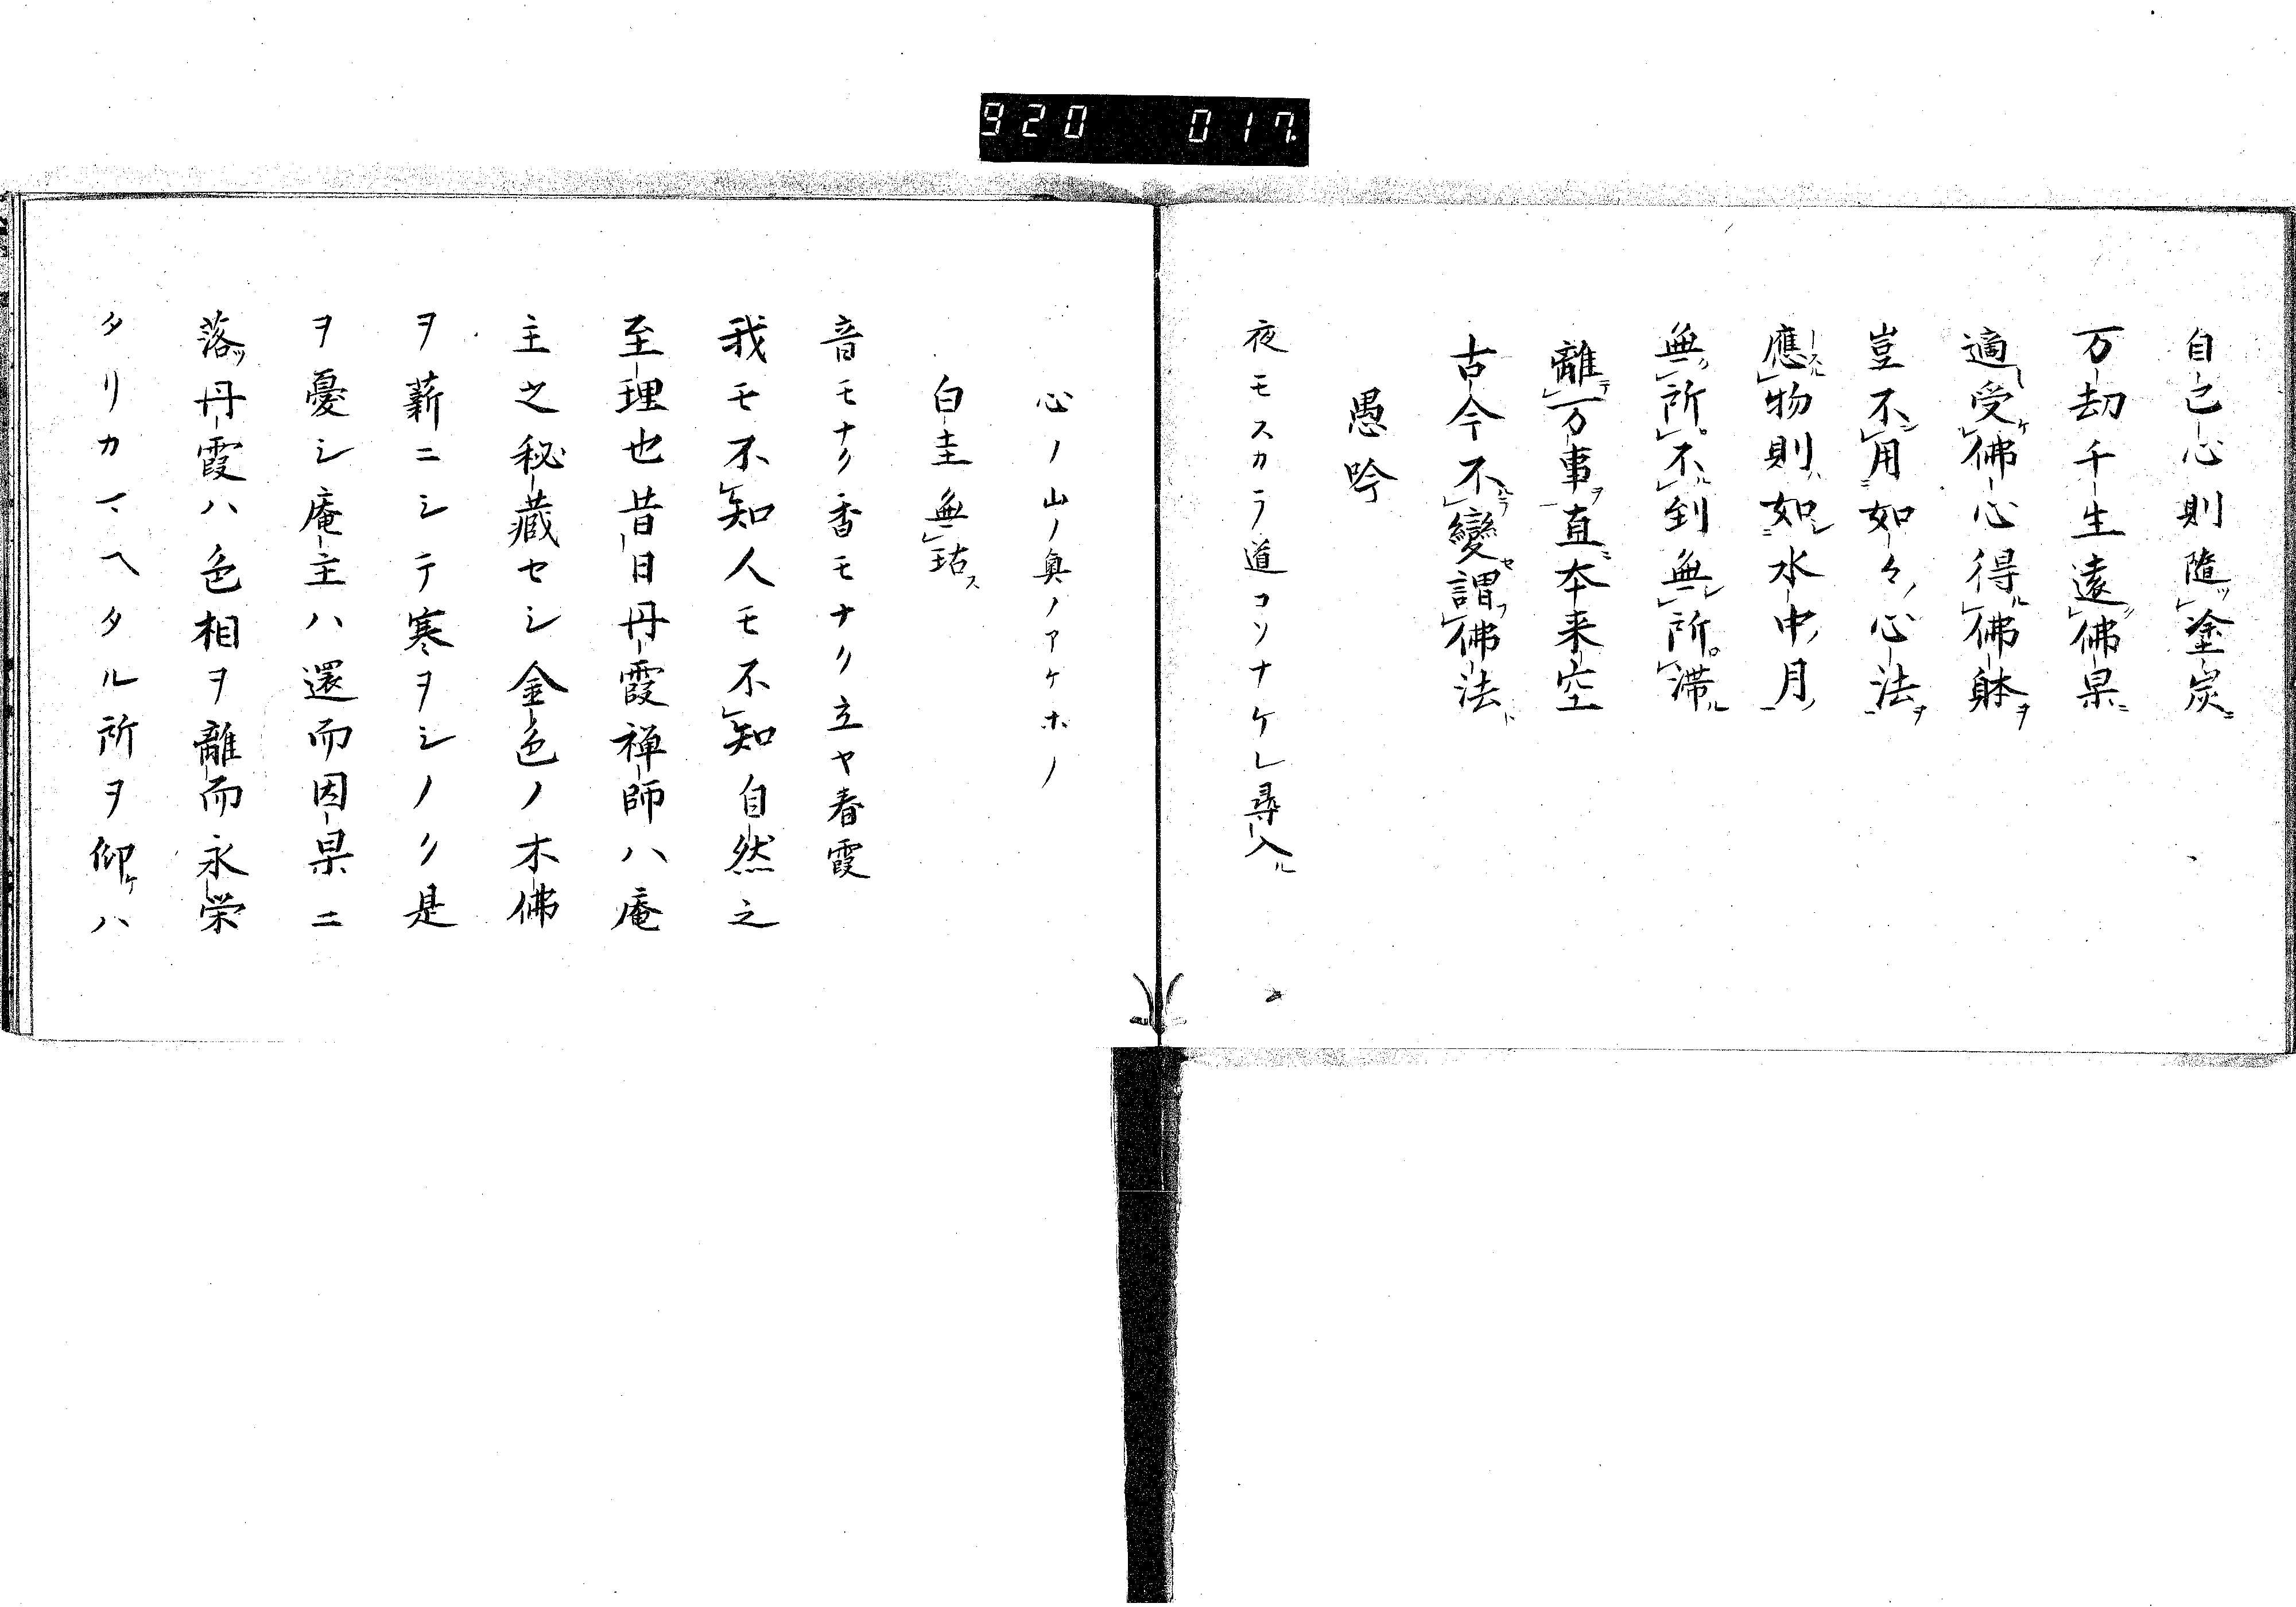 920 017
自己心則墮塗炭
万劫千生遠佛果
適受佛心得佛躰
豈不用如々心法
應物則如水中月
無所不到無所滞
離万事直本来空
古今不變謂佛法
愚吟
夜モスカラ道コソナケレ尋入ル
心ノ山ノ奥ノアケホノ
白圭無玷ス
音モナク香モナク立ヤ春霞
我モ不知人モ不知自然之
至理也昔日丹霞禅師ハ庵
主之秘藏セシ金色ノ木佛
ヲ薪ニシテ寒ヲシノク是
ヲ憂シ庵主ハ還而因果ニ
落ツ丹霞ハ色相ヲ離而永栄
タリカマヘタル所ヲ仰ケハ